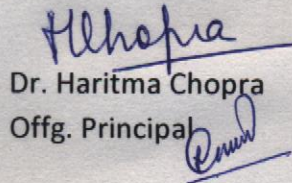 HChopra
Dr. Haritma Chopra
Offg. Principal